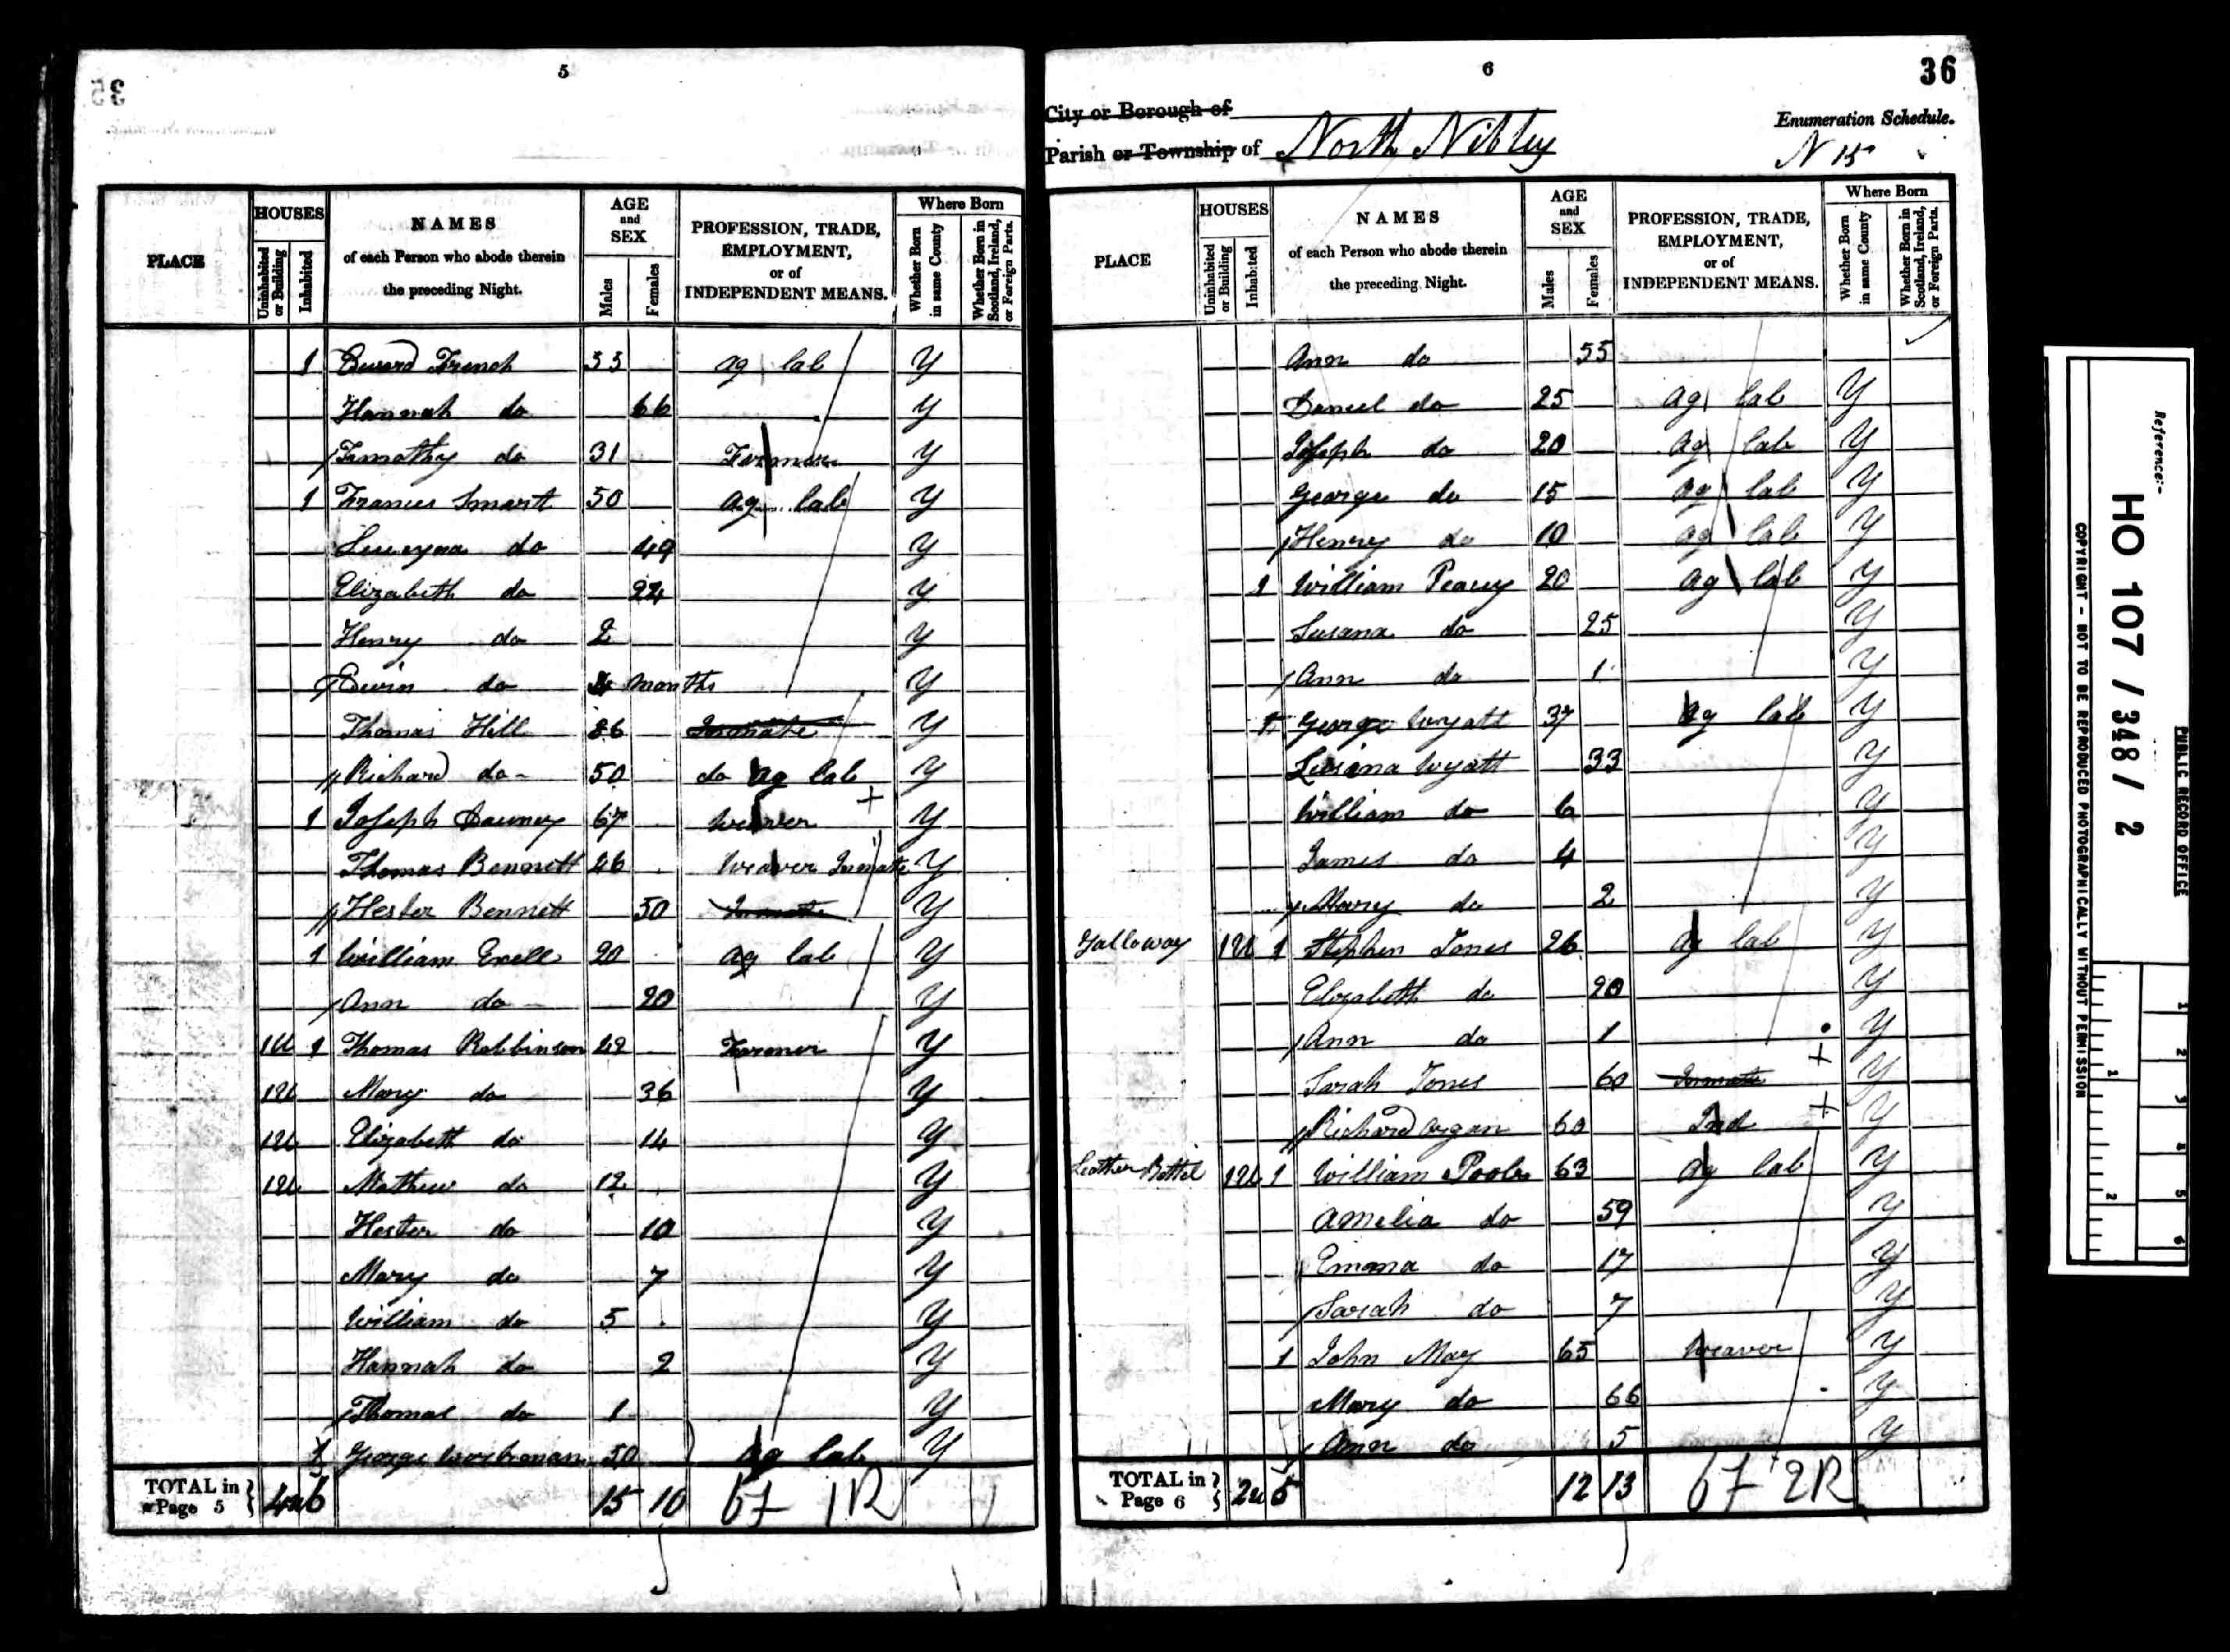 5
PLACE HOUSES Uninhabited or Building Inhabited NAMES of each Person who abode therein the preceding Night. AGE and SEX Males Females PROFESSION, TRADE, EMPLOYMENT, or of INDEPENDENT MEANS. Where Born Whether Born in same County Whether Born in Scotland, Ireland, or Foreign Parts.
1 French ag lab Y
Hannah do 66 Y
Timothy do 31 Y
1 Frances Smart 50 ag lab Y
do 49 Y
Elizabeth do 24 Y
Henry do 2 Y
Edwin do months Y
Thomas Hill Inmate Y
Richard do 50 do ag lab Y
1 Joseph 67 Weaver Y
Thomas Bennett 46 Weaver Inmate Y
Hester Bennett 50 Inmate Y
1 William Exell 20 ag lab Y
Ann do 20 Y
1U 1 Thomas Robbinson 42 Farmer Y
1U Mary do 36 Y
1U Elizabeth do 14 Y
1U Mathew do 12 Y
Hester do 10 Y
Mary do 7 Y
William do 5 Y
Hannah do 2 Y
Thomas do 1 Y
1 George Workman 50 ag lab Y
TOTAL in Page 5 4u 6 15 10 67 1R
6
36
City or Borough of
Enumeration Schedule.
Parish or Township of North Nibley
N 15
PLACE HOUSES Uninhabited or Building Inhabited NAMES of each Person who abode therein the preceding Night. AGE and SEX Males Females PROFESSION, TRADE, EMPLOYMENT, or of INDEPENDENT MEANS. Where Born Whether Born in same County Whether Born in Scotland, Ireland, or Foreign Parts.
Ann do 55
Daniel do 25 ag lab Y
Joseph do 20 ag lab Y
George do 15 ag lab Y
Henry do 10 ag lab Y
1 William Pearcy 20 ag lab Y
Susana do 25 Y
Ann do 1 Y
1 George Wyatt 37 ag lab Y
Wyatt 33 Y
William do 6 Y
James do 4 Y
Mary do 2 Y
Galloway 1U 1 Stephen Jones 26 ag lab Y
Elizabeth do 20 Y
Ann do 1 Y
Sarah Jones 60 Inmate Y
Richard Organ 60 Ind Y
Leather Bottel 1U 1 William Poole 63 ag lab Y
Amelia do 59 Y
Emma do 17 Y
Sarah do 7 Y
1 John May 65 Weaver Y
Mary do 66 Y
Ann do 5 Y
TOTAL in Page 6 2u 5 12 13 67 2R
Reference:-
HO 107 / 348 / 2
PUBLIC RECORD OFFICE
COPYRIGHT - NOT TO BE REPRODUCED PHOTOGRAPHICALLY WITHOUT PERMISSION